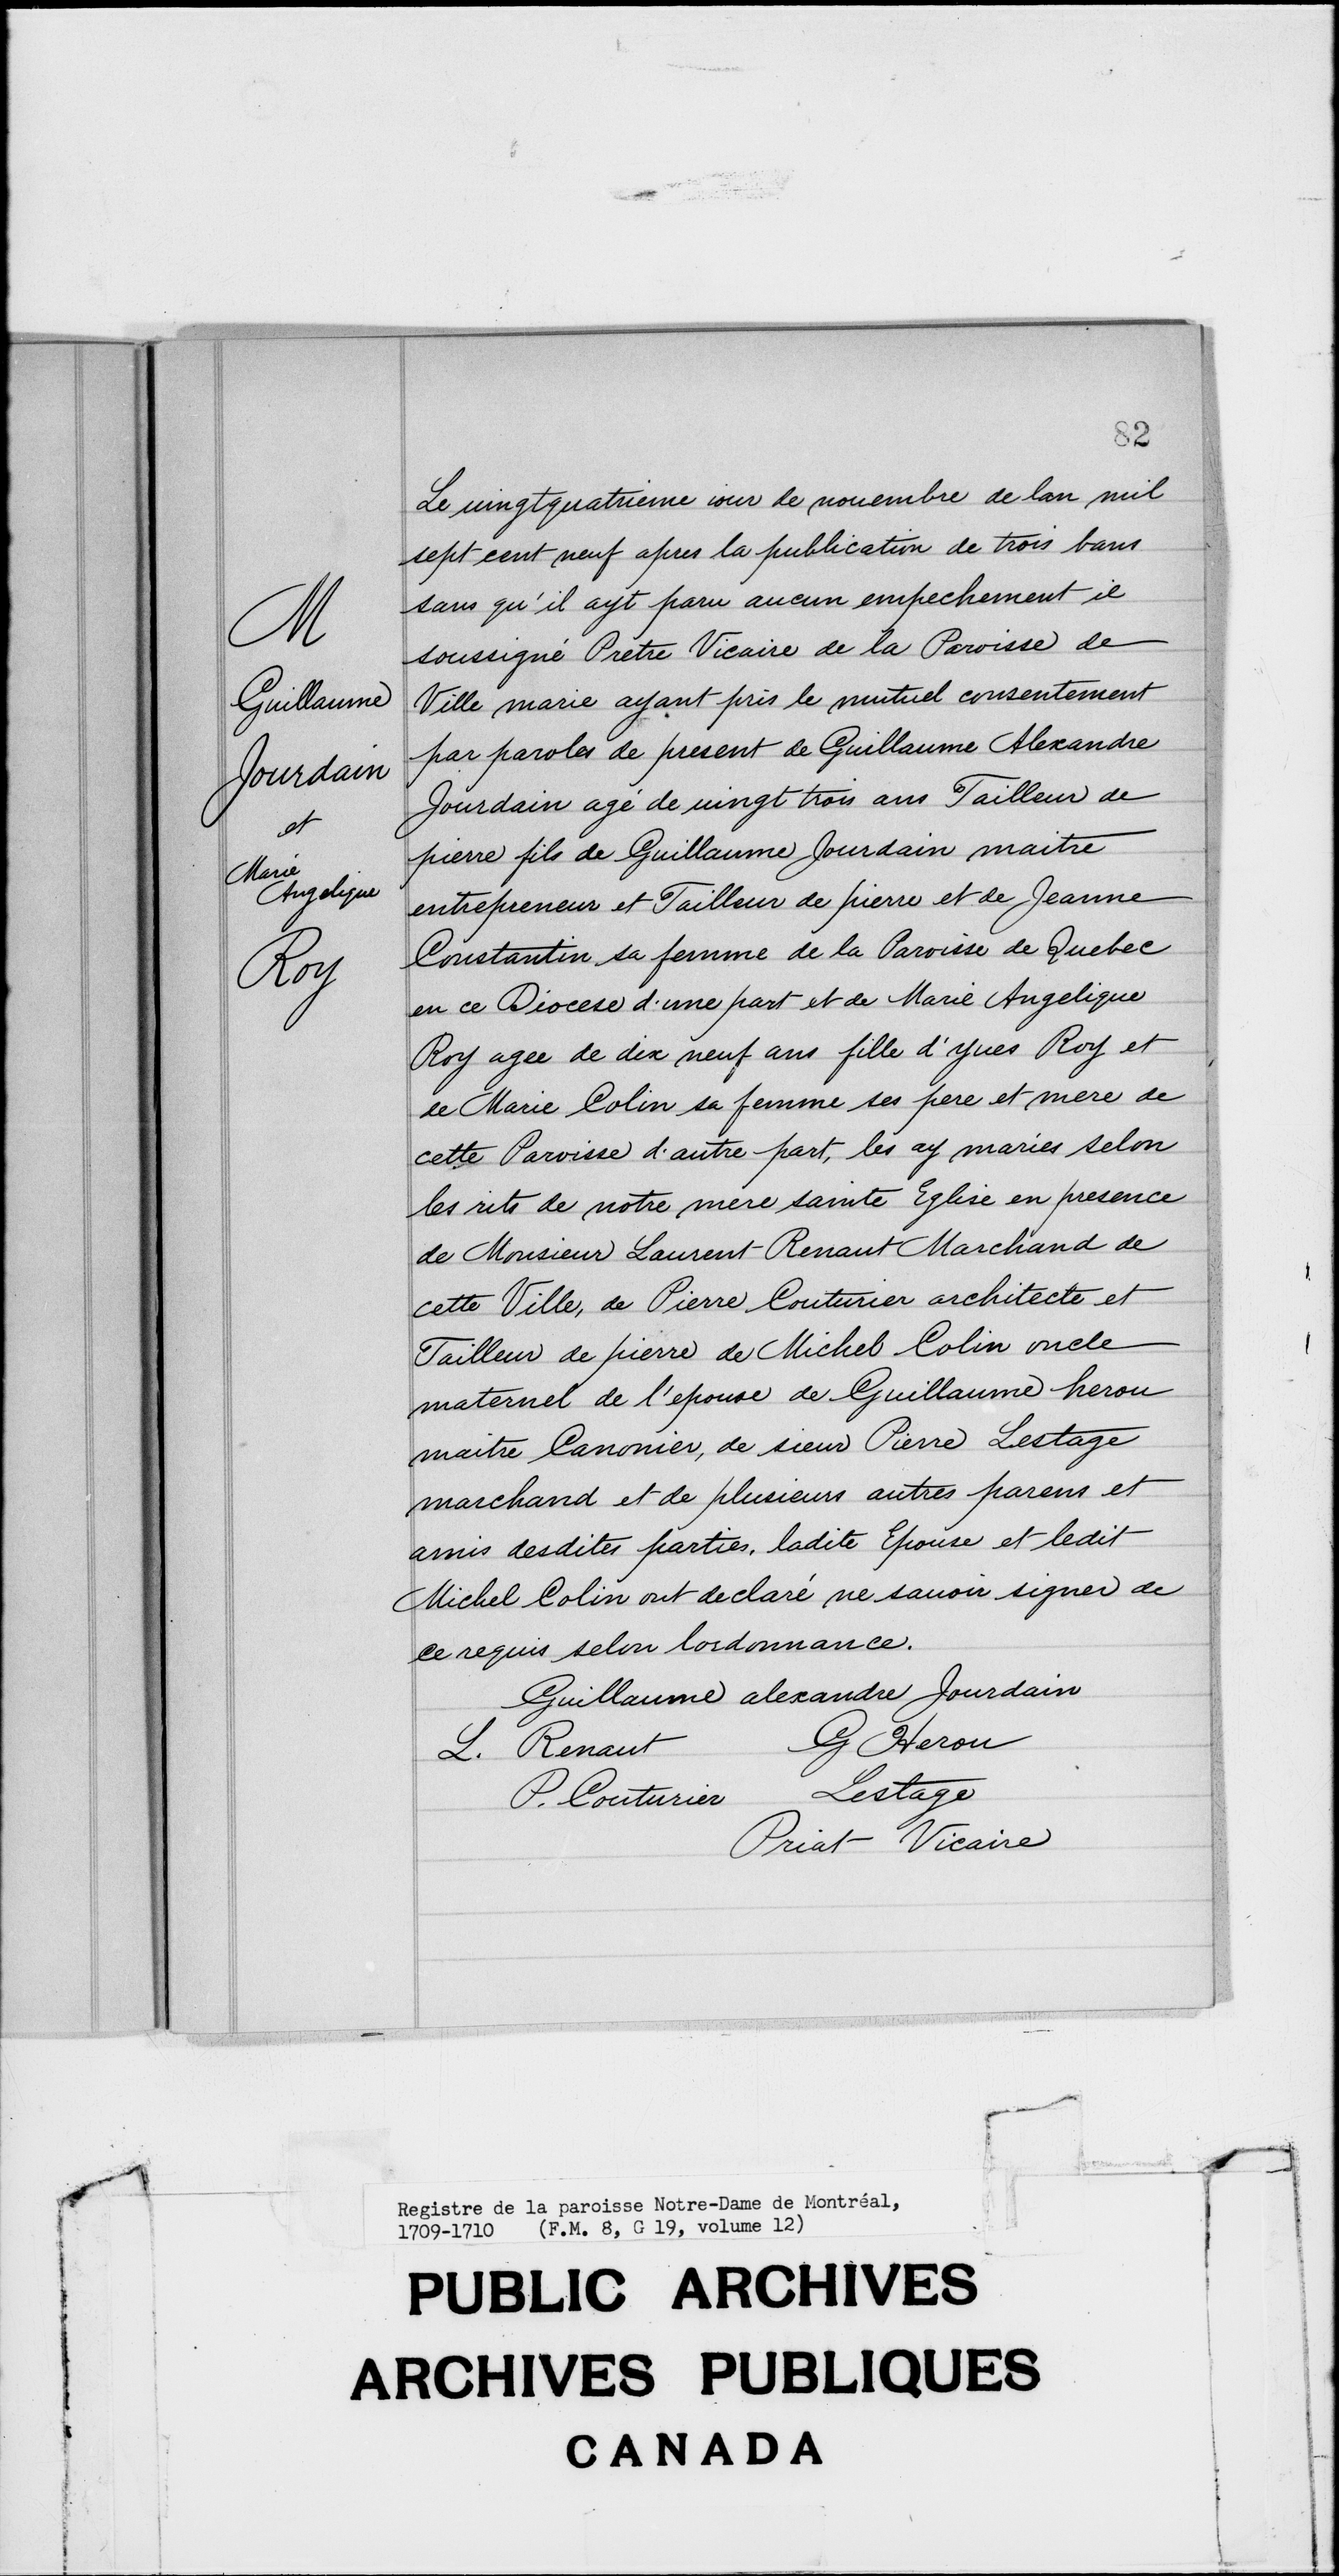 82
M
Guillaume
Jourdain
et
Marie
Angelique
Roy
Le uingtquatrieme iour de nouembre de lan mil
sept cent neuf apres la publication de trois bans
sans qu'il ayt paru aucun empechement ie
soussigné Pretre Vicaire de la Paroisse de
Ville marie ayant pris le mutuel consentement
par paroles de present de Guillaume Alexandre
Jourdain agé de uingt trois ans Tailleur de
pierre fils de Guillaume Jourdain maitre
entrepreneur et Tailleur de pierre et de Jeanne
Constantin sa femme de la Paroisse de Quebec
en ce Diocese d'une part et de Marie Angelique
Roy agee de dix neuf ans fille d'yues Roy et
de Marie Colin sa femme ses pere et mere de
cette Paroisse d'autre part, les ay mariés selon
les rits de notre mere sainte Eglise en presence
de Monsieur Laurent Renaut Marchand de
cette Ville, de Pierre Couturier architecte et
Tailleur de pierre de Michel Colin oncle
maternel de l'epouse de Guillaume herou
maitre Canonier, de sieur Pierre Lestage
marchand et de plusieurs autres parens et
amis desdites parties. ladite Epouse et ledit
Michel Colin ont declaré ne sauoir signer de
ce requis selon lordonnance.
Guillaume alexandre Jourdain
L. Renaut G Herou
P. Couturier Lestage
Priat Vicaire
Registre de la paroisse Notre-Dame de Montréal,
1709-1710 (F.M. 8, G 19, volume 12)
PUBLIC ARCHIVES
ARCHIVES PUBLIQUES
CANADA